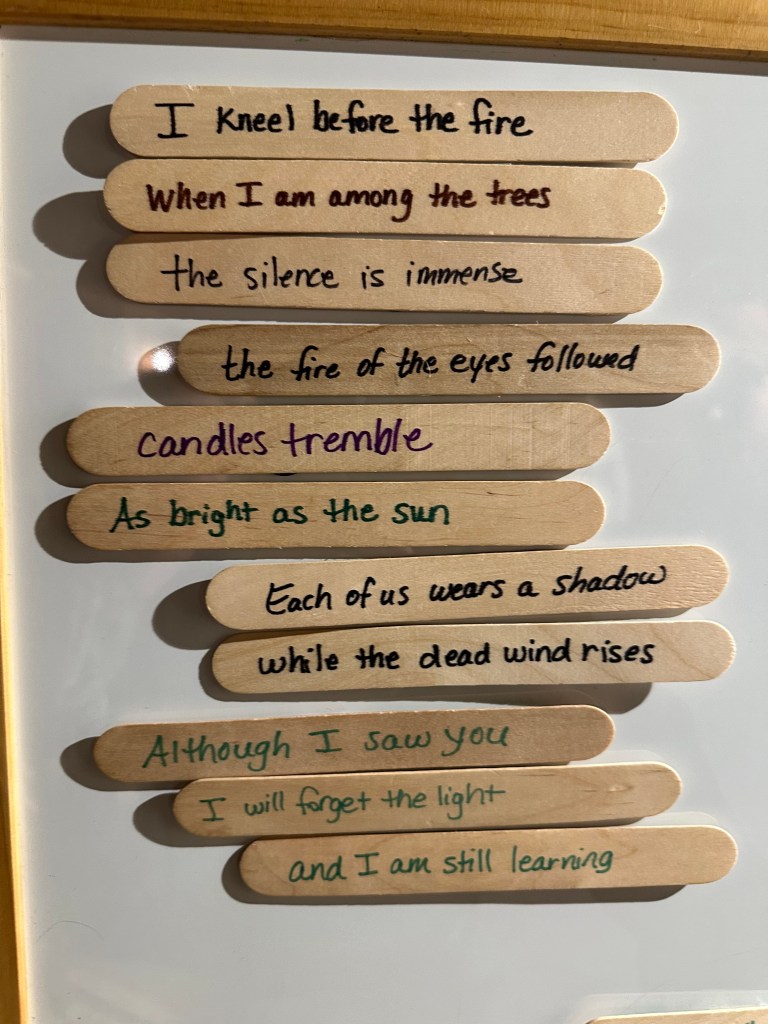 I kneel before the fire
When I am among the trees
the silence is immense
the fire of the eyes followed
candles tremble
As bright as the sun
Each of us wears a shadow
while the dead wind rises
Although I saw you
I will forget the light
and I am still learning